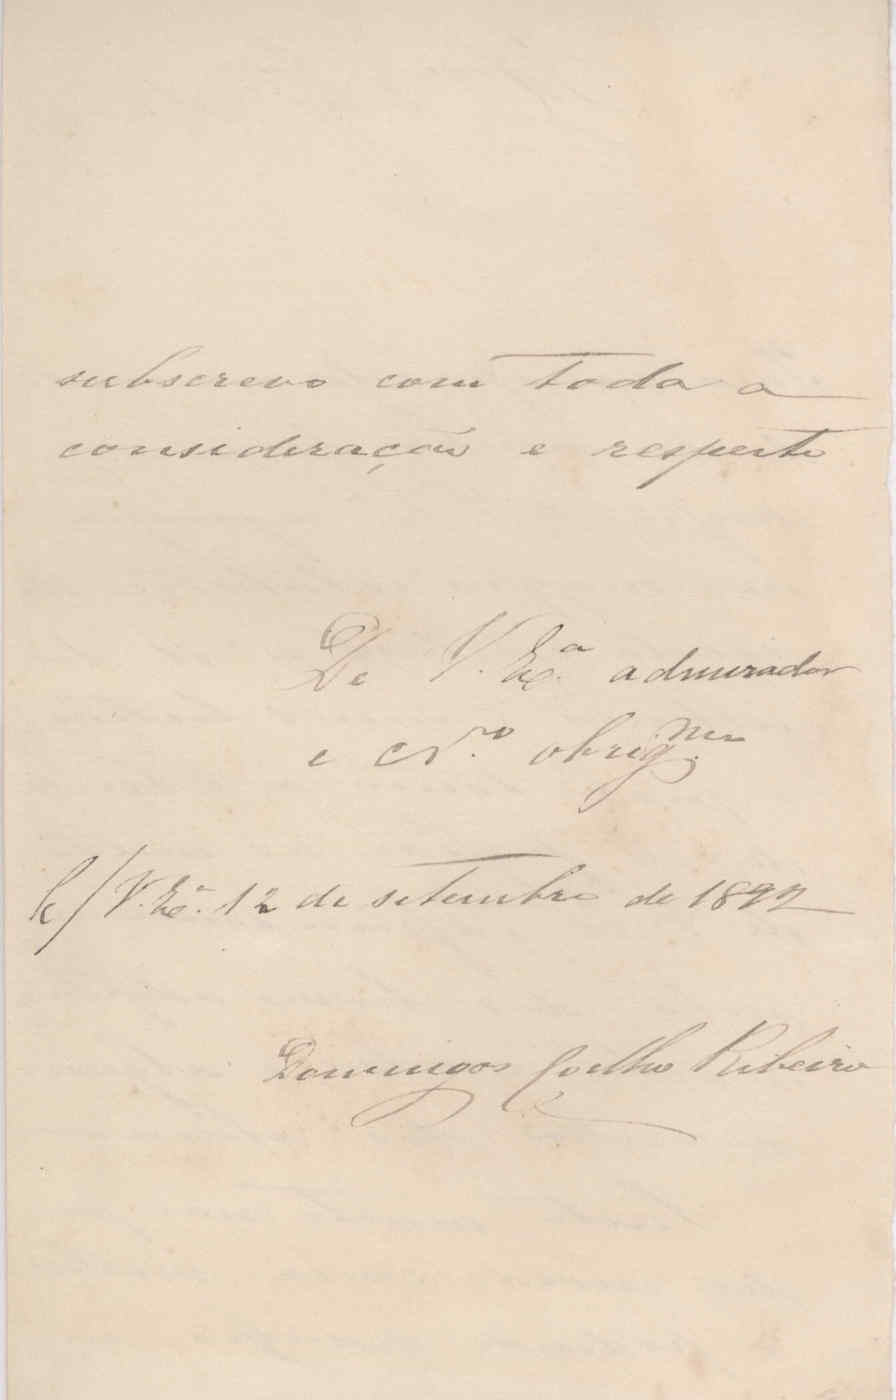 subscrevo com toda a
consideração e respeito
De V. Exª admirador
e crº obrigmo
C/ V. Exª. 12 de setembro de 1892
Domingos Coelho Ribeiro